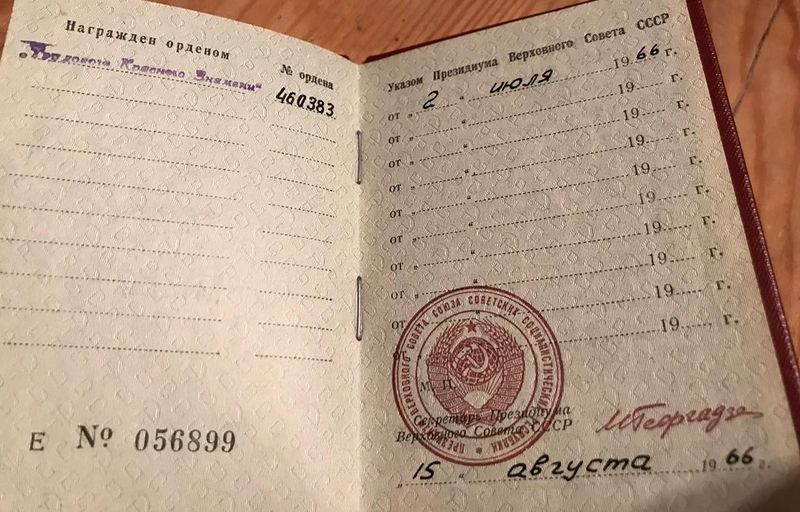 Награжден орденом
№ ордена
„Трудового Красного Знамени“
460383
Е № 056899
Указом Президиума Верховного Совета СССР
от „ 2 “ июля 1966 г.
от „ “ 19 г.
от „ “ 19 г.
от „ “ 19 г.
от „ “ 19 г.
от „ “ 19 г.
от „ “ 19 г.
от „ “ 19 г.
от „ “ 19 г.
М. П.
Секретарь Президиума
Верховного Совета СССР
МГеоргадзе
„ 15 “ августа 1966 г.
ПРЕЗИДИУМ ВЕРХОВНОГО СОВЕТА СОЮЗА СОВЕТСКИХ СОЦИАЛИСТИЧЕСКИХ РЕСПУБЛИК